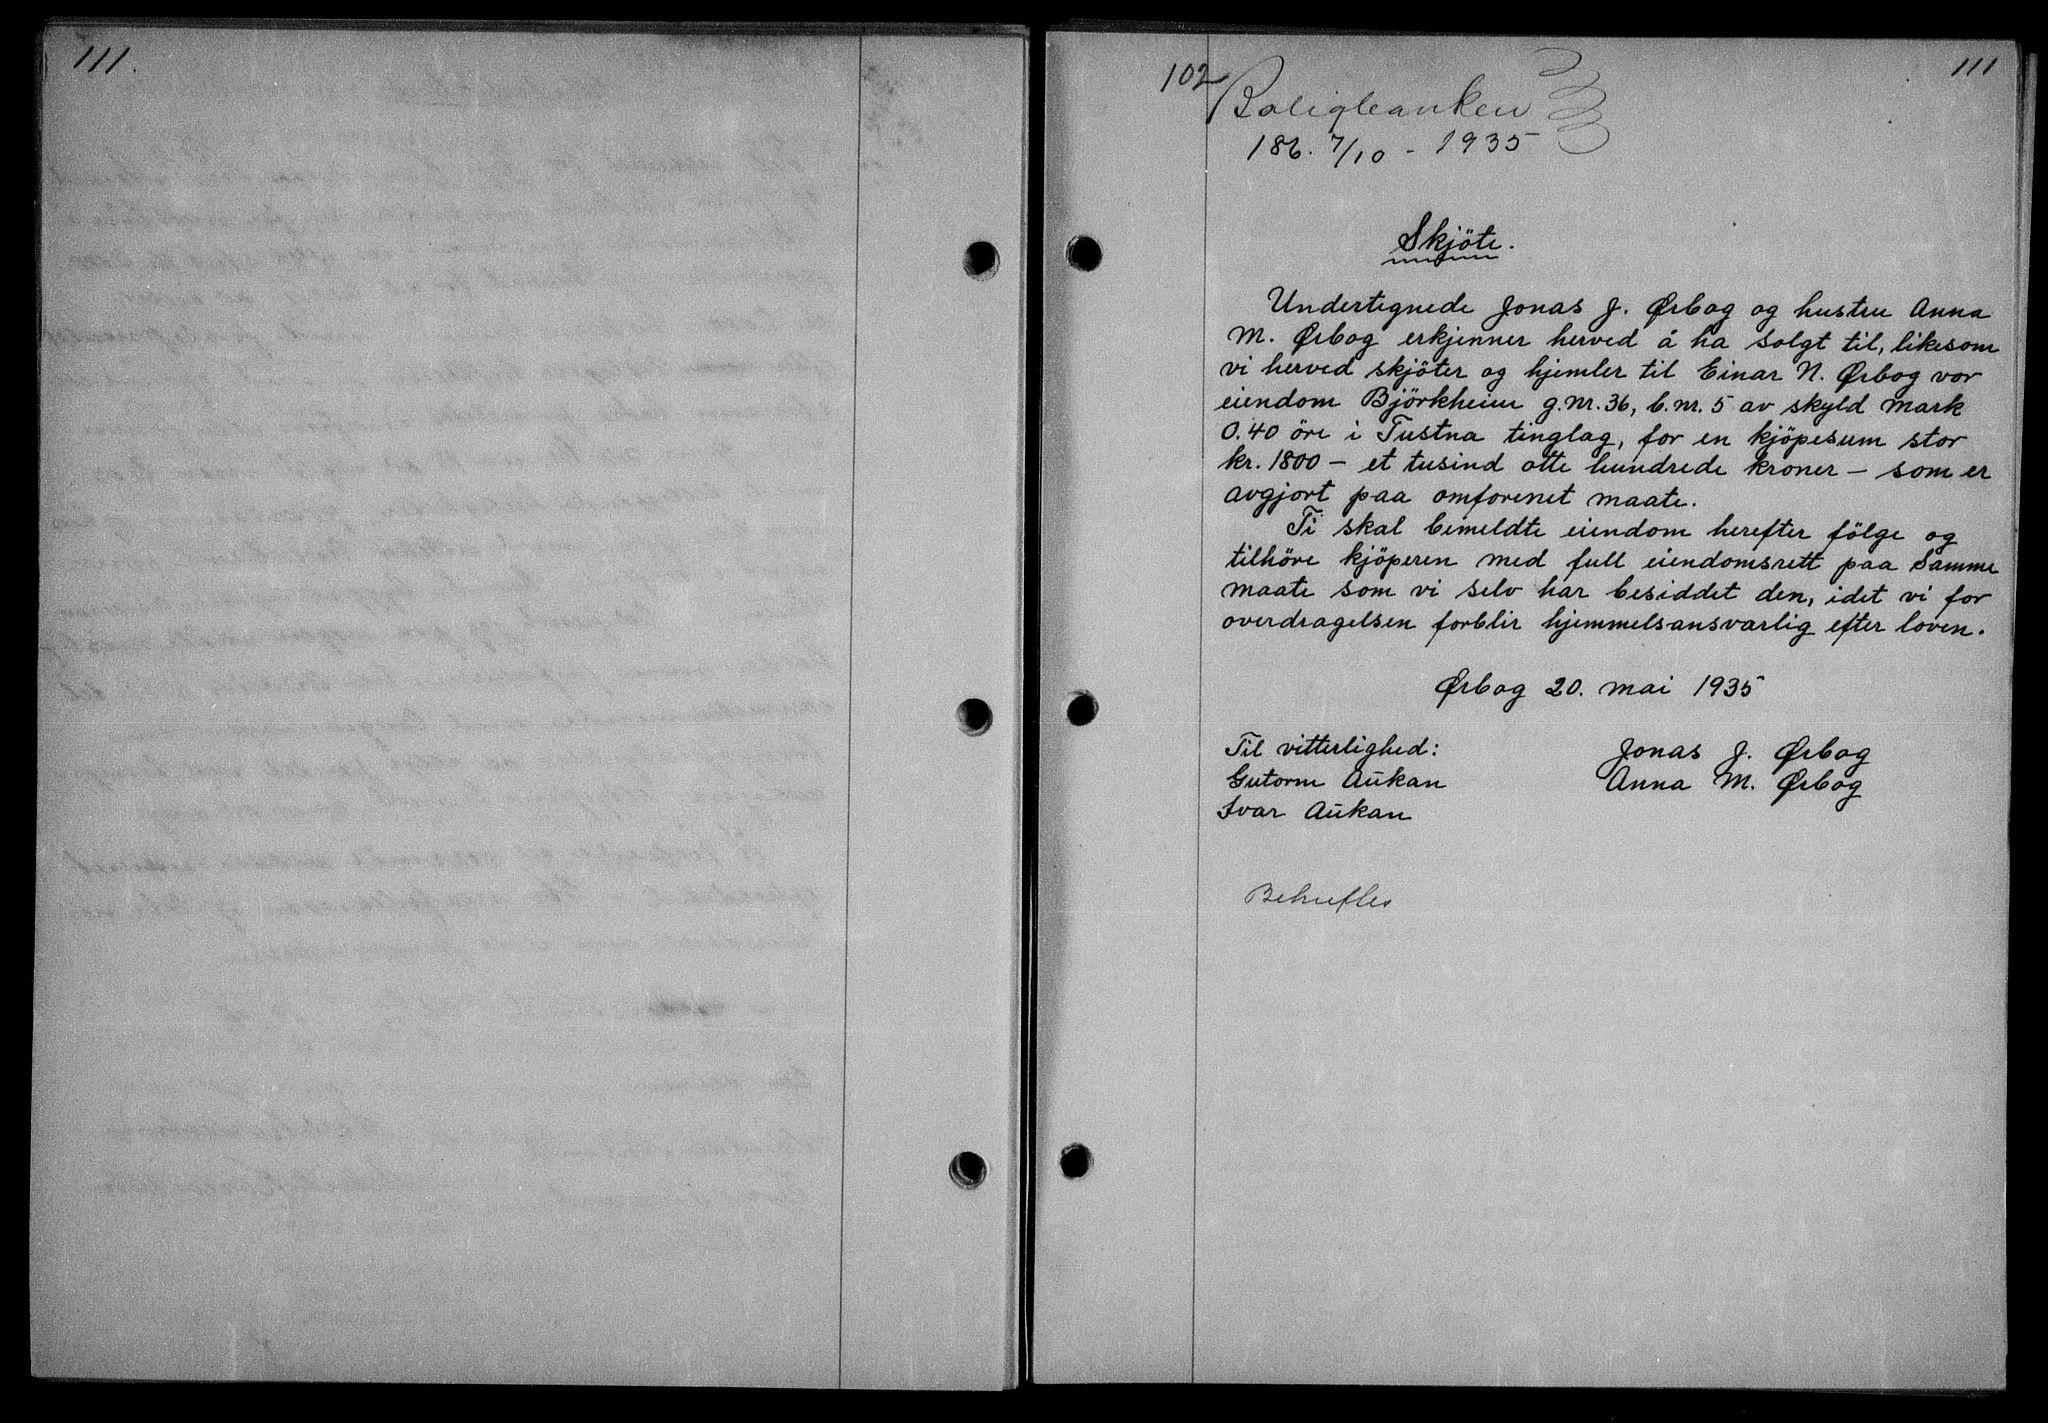 111.
102
111
Boligbanken
186. 7/10 - 1935
Skjöte.
Undertegnede Jonas J. Ørbog og hustru Anna
M. Ørbog erkjenner herved å ha solgt til, likesom
vi herved skjöter og hjemler til Einar N. Ørbog vor
eiendom Björkheim g.nr. 36, b.nr. 5 av skyld mark
0.40 öre i Tustna tinglag, for en kjöpesum stor
kr. 1800 – et tusind otte hundrede kroner – som er
avgjort paa omforenet maate.
Ti skal bemeldte eiendom herefter fölge og
tilhöre kjöperen med full eiendomsrett paa samme
maate som vi selv har besiddet den, idet vi for
overdragelsen forblir hjemmelsansvarlig efter loven.
Ørbog 20. mai 1935
Til vitterlighed:
Gutorm Aukan
Ivar Aukan
Jonas J. Ørbog
Anna M. Ørbog